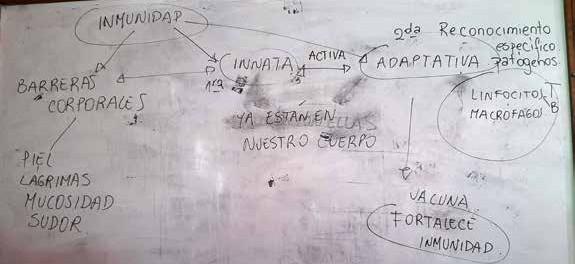 INMUNIDAD
BARRERAS
CORPORALES
PIEL
LAGRIMAS
MUCOSIDAD
SUDOR
1ra
INNATA
ACTIVA
YA ESTAN EN
NUESTRO CUERPO
2da Reconocimiento
especifico
patogenos
ADAPTATIVA
LINFOCITOS T
B
MACROFAGOS
VACUNA
FORTALECE
INMUNIDAD